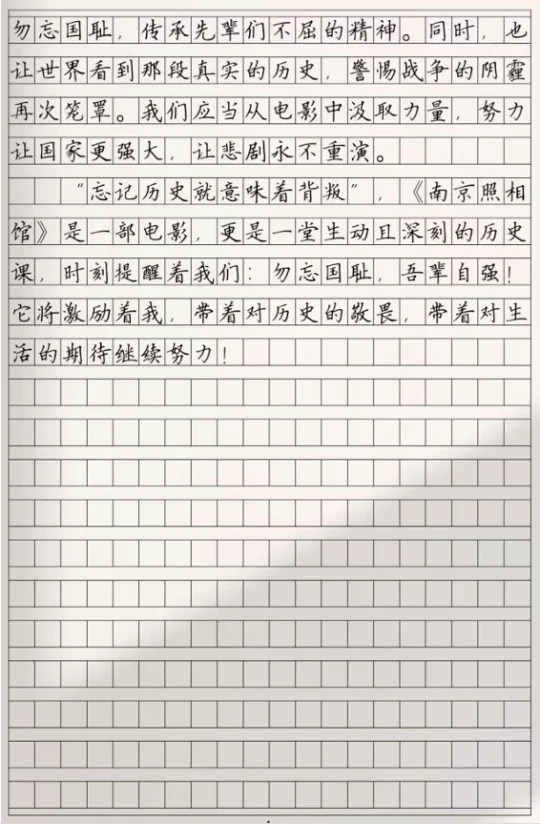 勿忘国耻，传承先辈们不屈的精神。同时，也
让世界看到那段真实的历史，警惕战争的阴霾
再次笼罩。我们应当从电影中汲取力量，努力
让国家更强大，让悲剧永不重演。
“忘记历史就意味着背叛”，《南京照相
馆》是一部电影，更是一堂生动且深刻的历史
课，时刻提醒着我们：勿忘国耻，吾辈自强！
它将激励着我，带着对历史的敬畏，带着对生
活的期待继续努力！